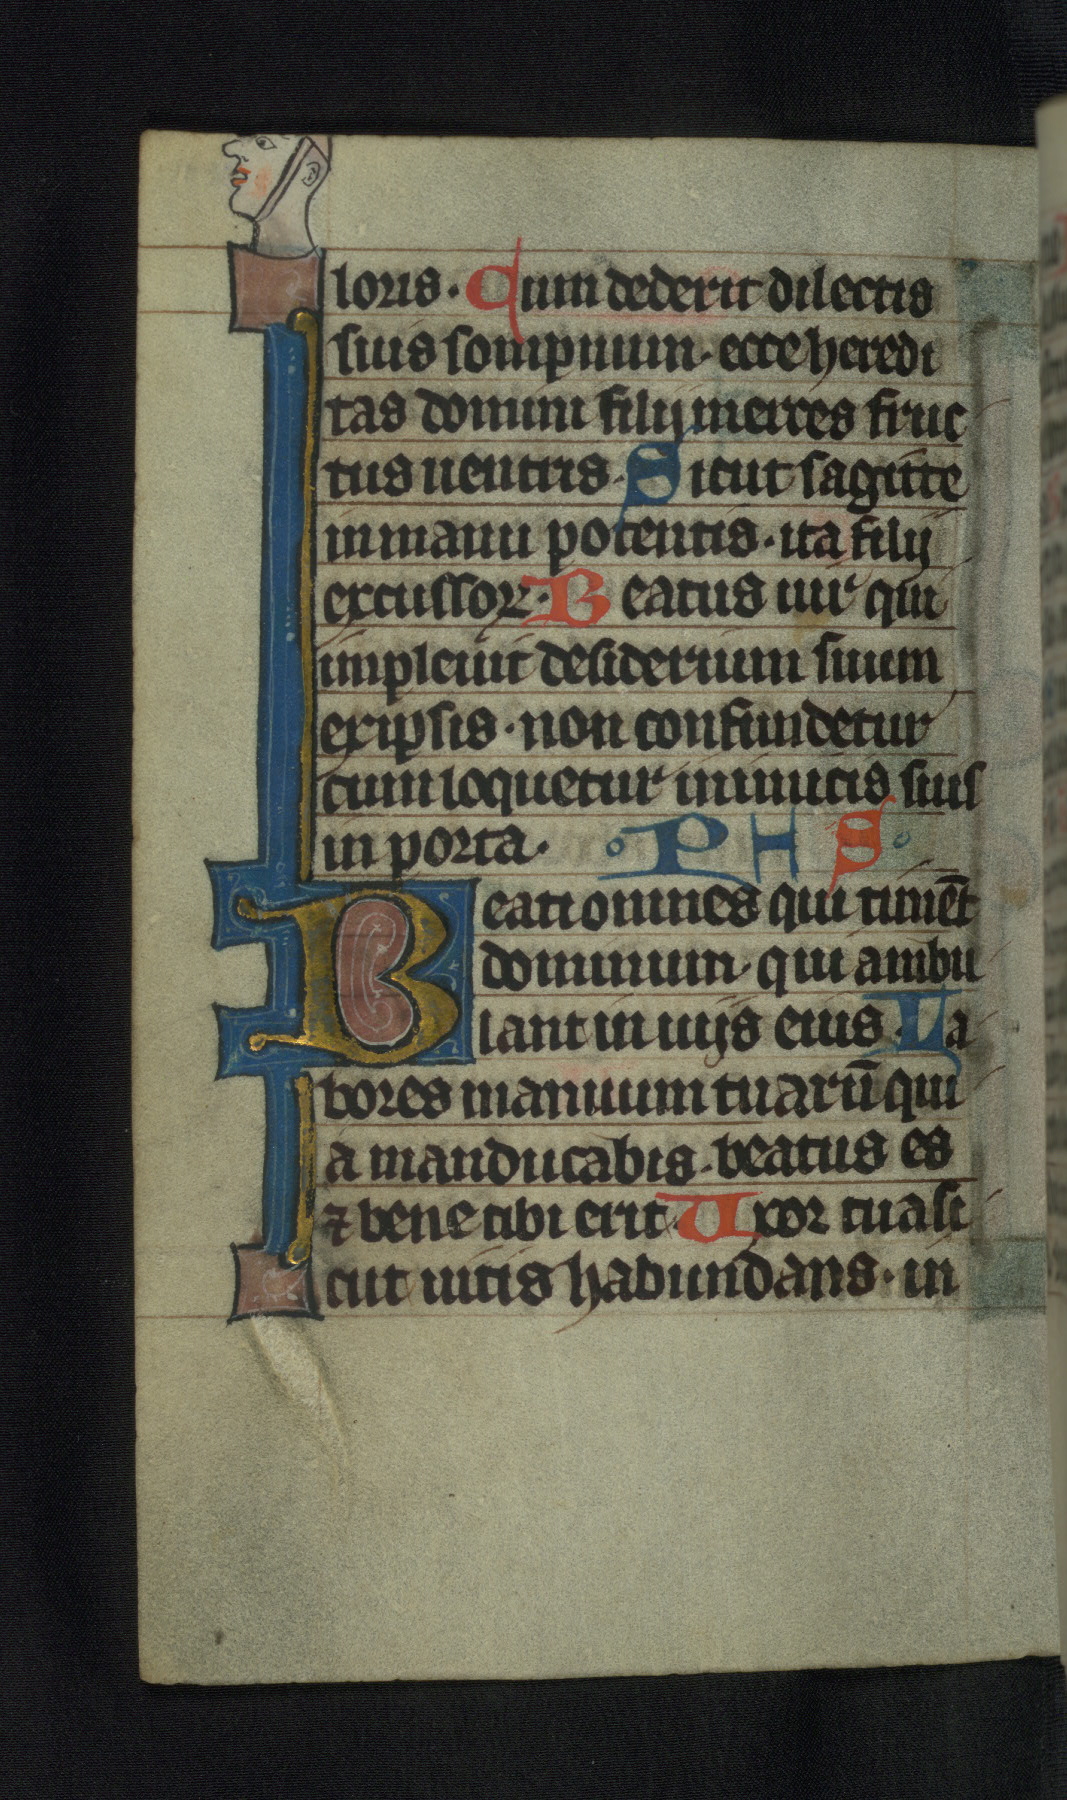 loris. Cum dederit dilectis
suis sompnum. ecce heredi
tas domini filij merces fruc
tus uentris. Sicut sagitte
in manu potentis. ita filij
excussoꝝ. Beatus uir qui
impleuit desiderium suum
ex ipsis. non confundetur
cum loquetur inimicis suis
in porta. PHS
Beati omnes qui timēt
dominum. qui ambu
lant in uijs eius. La
bores manuum tuarū qui
a manducabis. beatus es
⁊ bene tibi erit. Uxor tua si
cut uitis habundans. in